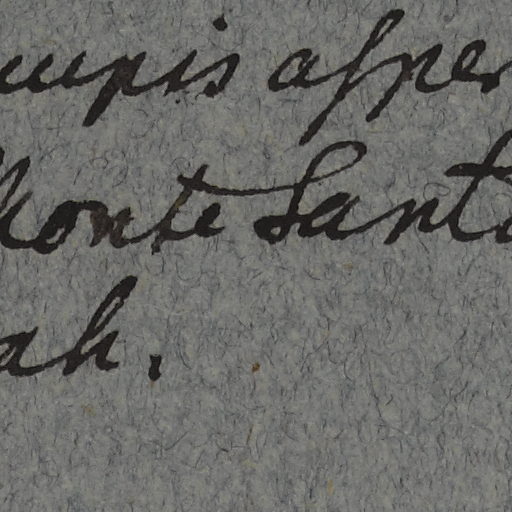 rupis asper
Monte Santo
ah.